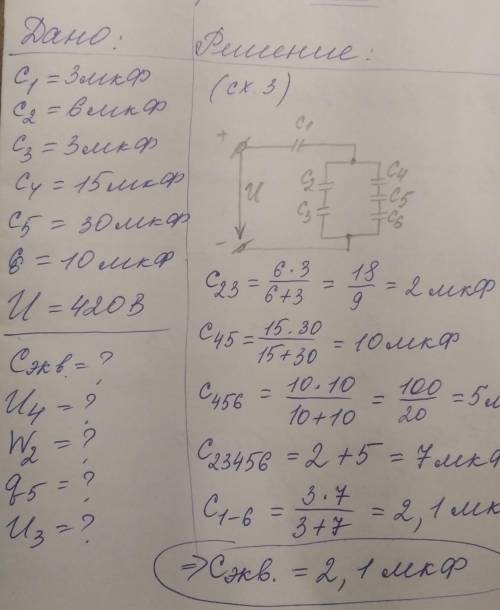 Дано:
C1 = 3мкФ
C2 = 6мкФ
C3 = 3мкФ
C4 = 15мкФ
C5 = 30мкФ
6 = 10мкФ
U = 420В
Cэкв. = ?
U4 = ?
W2 = ?
q5 = ?
U3 = ?
Решение:
(сх. 3)
C1
+
U
-
C2
C3
C4
C5
C6
C23 = 6·3/6+3 = 18/9 = 2мкФ
C45 = 15·30/15+30 = 10мкФ
C456 = 10·10/10+10 = 100/20 = 5м
C23456 = 2+5 = 7мкФ
C1-6 = 3·7/3+7 = 2,1мк
⇒ Cэкв. = 2,1мкФ